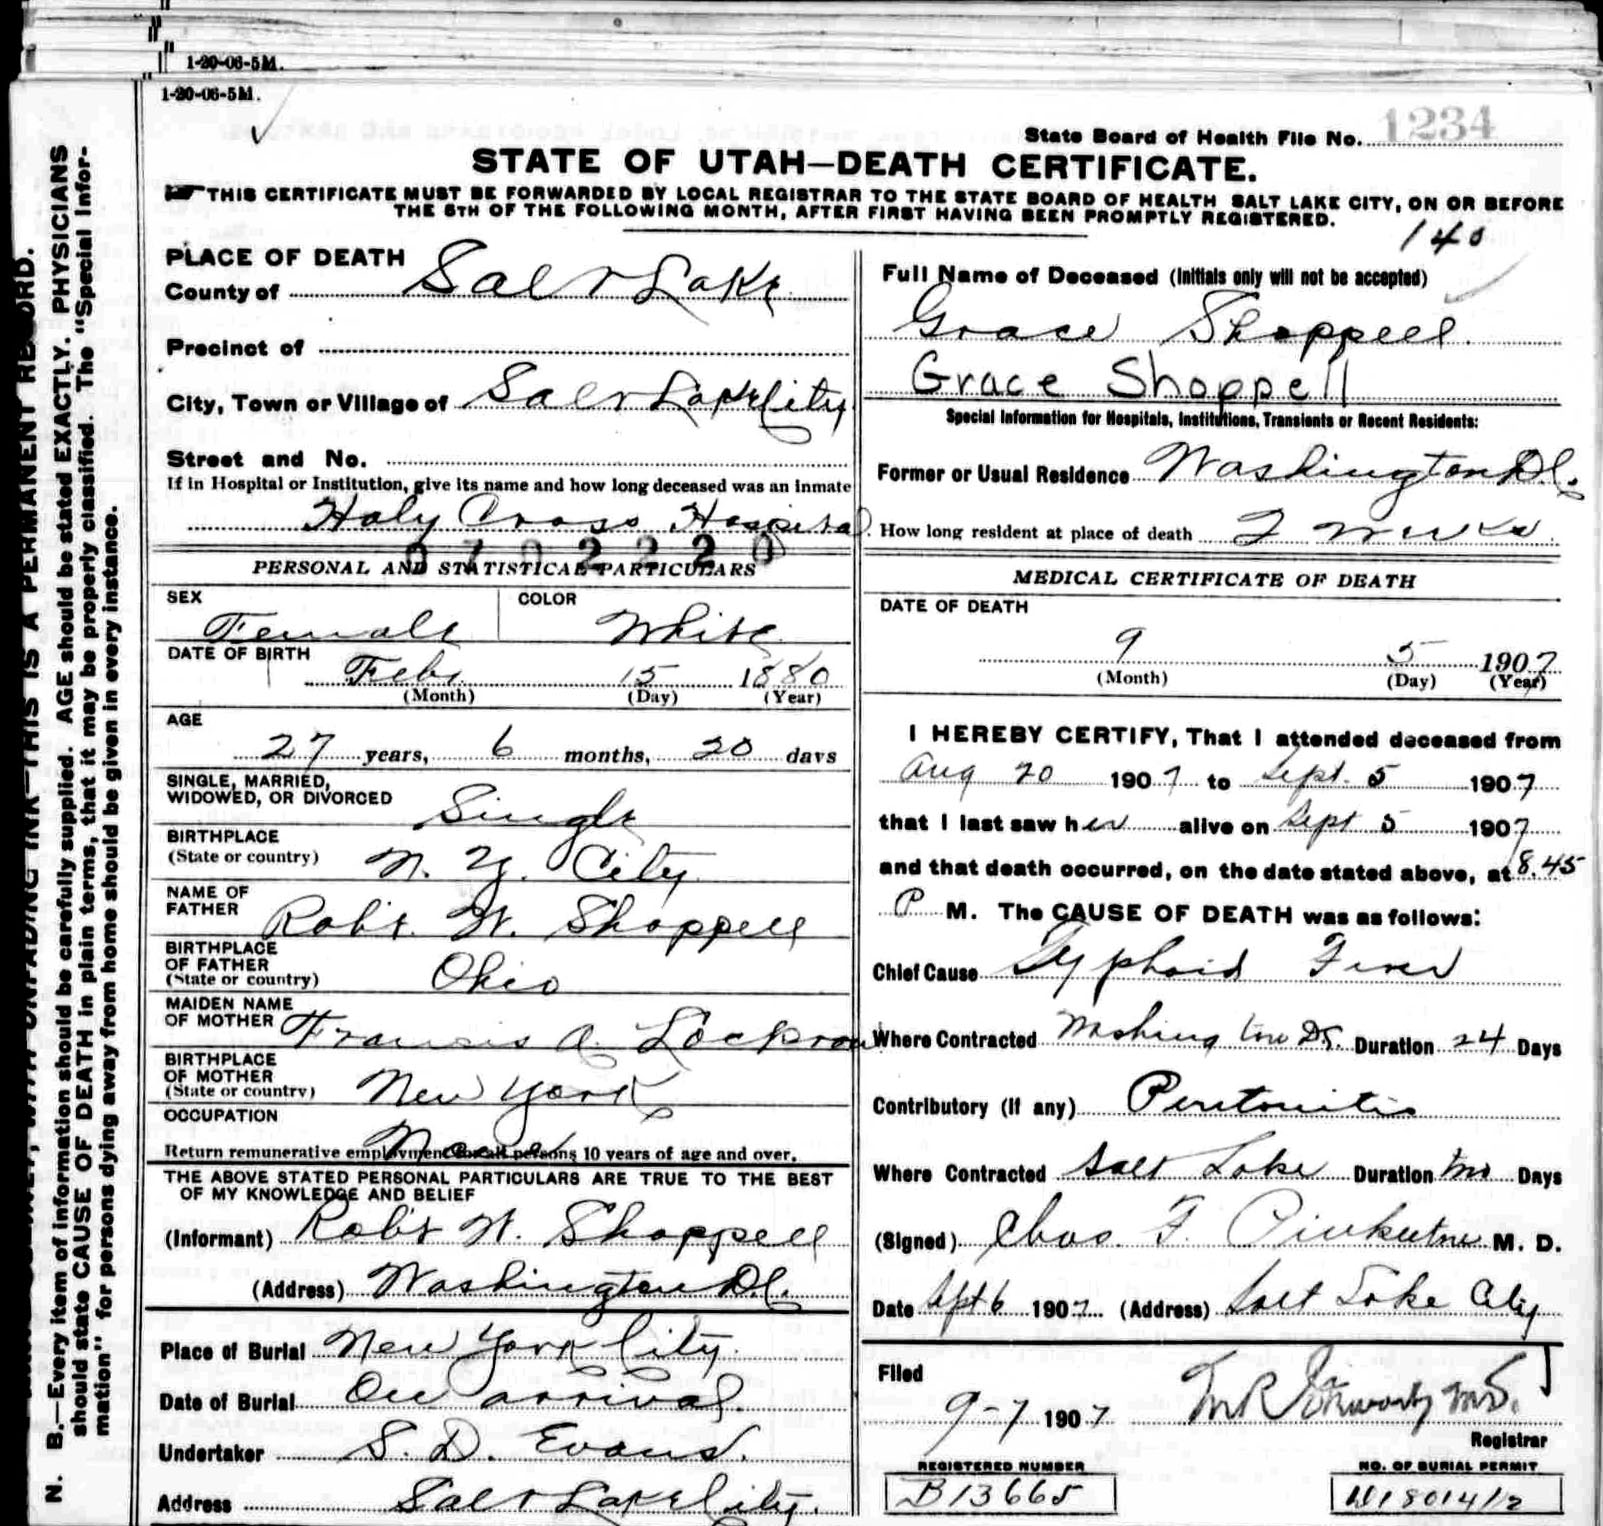 1-20-06-5M.
1-20-06-5M.
State Board of Health File No. 1234
STATE OF UTAH—DEATH CERTIFICATE.
THIS CERTIFICATE MUST BE FORWARDED BY LOCAL REGISTRAR TO THE STATE BOARD OF HEALTH SALT LAKE CITY, ON OR BEFORE
THE 5TH OF THE FOLLOWING MONTH, AFTER FIRST HAVING BEEN PROMPTLY REGISTERED.
140
PLACE OF DEATH
County of Salt Lake
Precinct of
City, Town or Village of Salt Lake City
Street and No.
If in Hospital or Institution, give its name and how long deceased was an inmate
Holy Cross Hospital
PERSONAL AND STATISTICAL PARTICULARS
SEX COLOR
Female White
DATE OF BIRTH
Feb. 15 1880
(Month) (Day) (Year)
AGE
27 years, 6 months, 20 days
SINGLE, MARRIED,
WIDOWED, OR DIVORCED Single
BIRTHPLACE
(State or country) N. Y. City
NAME OF
FATHER Rob't. W. Shoppell
BIRTHPLACE
OF FATHER
(State or country) Ohio
MAIDEN NAME
OF MOTHER Francis A.
BIRTHPLACE
OF MOTHER
(State or country) New York
OCCUPATION
None
Return remunerative employment for all persons 10 years of age and over.
THE ABOVE STATED PERSONAL PARTICULARS ARE TRUE TO THE BEST
OF MY KNOWLEDGE AND BELIEF
(Informant) Rob't W. Shoppell
(Address) Washington D.C.
Place of Burial New York City.
Date of Burial On arrival.
Undertaker S. D. Evans.
Address Salt Lake City.
Full Name of Deceased (Initials only will not be accepted)
Grace Shoppell.
Grace Shoppell
Special Information for Hospitals, Institutions, Transients or Recent Residents:
Former or Usual Residence Washington D.C.
How long resident at place of death 2 weeks
MEDICAL CERTIFICATE OF DEATH
DATE OF DEATH
9 5 1907
(Month) (Day) (Year)
I HEREBY CERTIFY, That I attended deceased from
Aug 20 1907 to Sept. 5 1907
that I last saw her alive on Sept 5 1907
and that death occurred, on the date stated above, at 8.45
P M. The CAUSE OF DEATH was as follows:
Chief Cause Typhoid Fever
Where Contracted Washington D.C. Duration 24 Days
Contributory (if any) Peritonitis
Where Contracted Salt Lake Duration Days
(Signed) Chas. F. Pinkerton M. D.
Date Sept 6 1907 (Address) Salt Lake City
Filed
9-7 1907
Registrar
REGISTERED NUMBER
B13665
NO. OF BURIAL PERMIT
N. B.—Every item of information should be carefully supplied. AGE should be stated EXACTLY. PHYSICIANS
should state CAUSE OF DEATH in plain terms, that it may be properly classified. The "Special Infor-
mation" for persons dying away from home should be given in every instance.
THIS IS A PERMANENT RECORD.